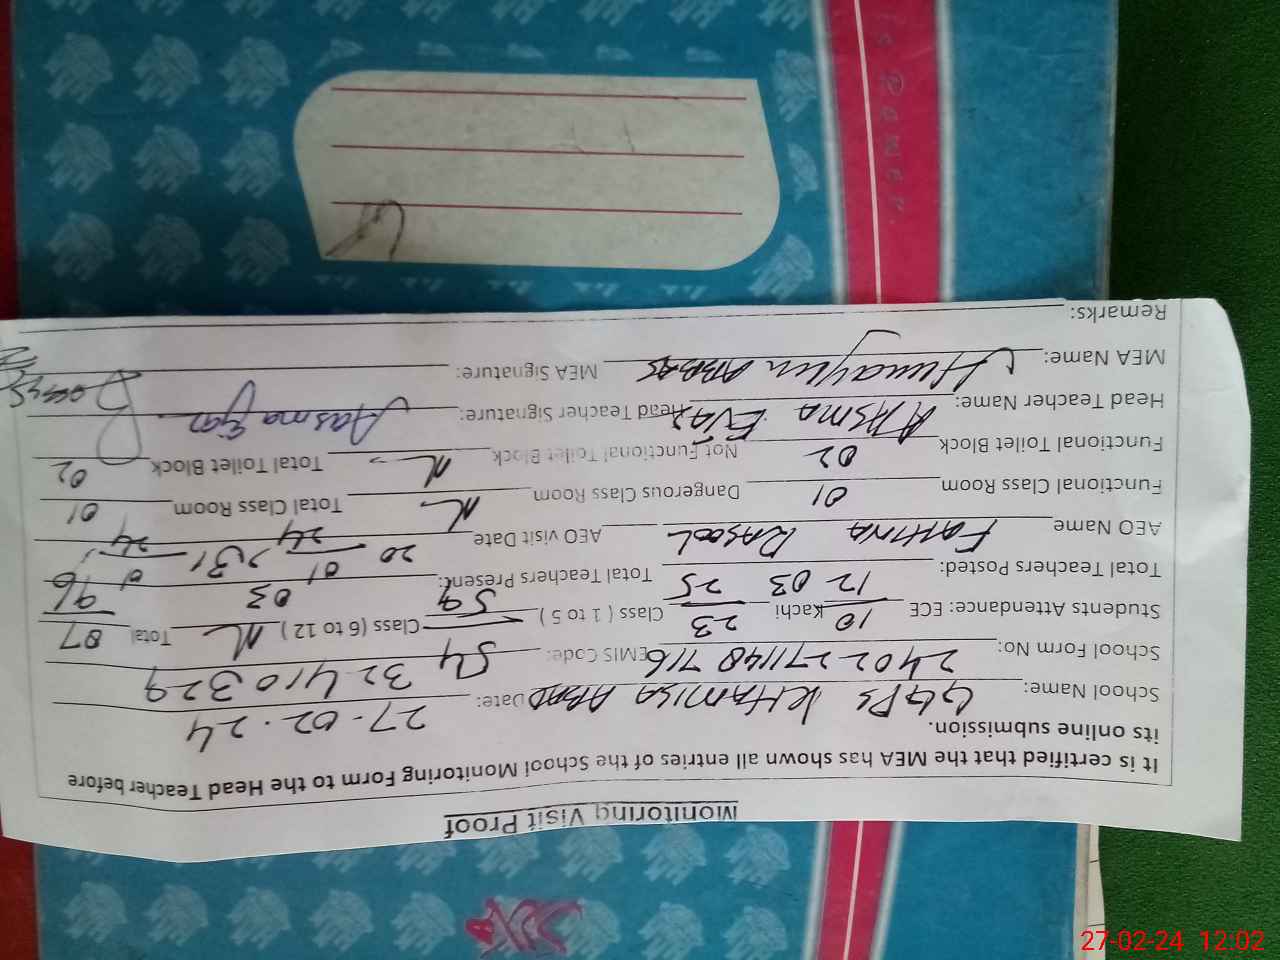 Monitoring Visit Proof
It is certified that the MEA has shown all entries of the School Monitoring Form to the Head Teacher before
its online submission.
School Name: GGPS KHAMISA ABAD Date: 27-02-24
School Form No: 2402271148716 EMIS Code: 32410329
Students Attendance: ECE 10/12 Kachi 23/25 Class ( 1 to 5 ) 54/59 Class ( 6 to 12 ) N Total 87/96
Total Teachers Posted: 03 Total Teachers Present: 03
AEO Name FAHINA RASOOL AEO visit Date 20/01/24 31/01/24
Functional Class Room 01 Dangerous Class Room N Total Class Room 01
Functional Toilet Block 02 Not Functional Toilet Block N Total Toilet Block 02
Head Teacher Name: AASMA EJAZ Head Teacher Signature: Aasma Ejaz
MEA Name: Humayun ABBAS MEA Signature:
Remarks:
27-02-24 12:02